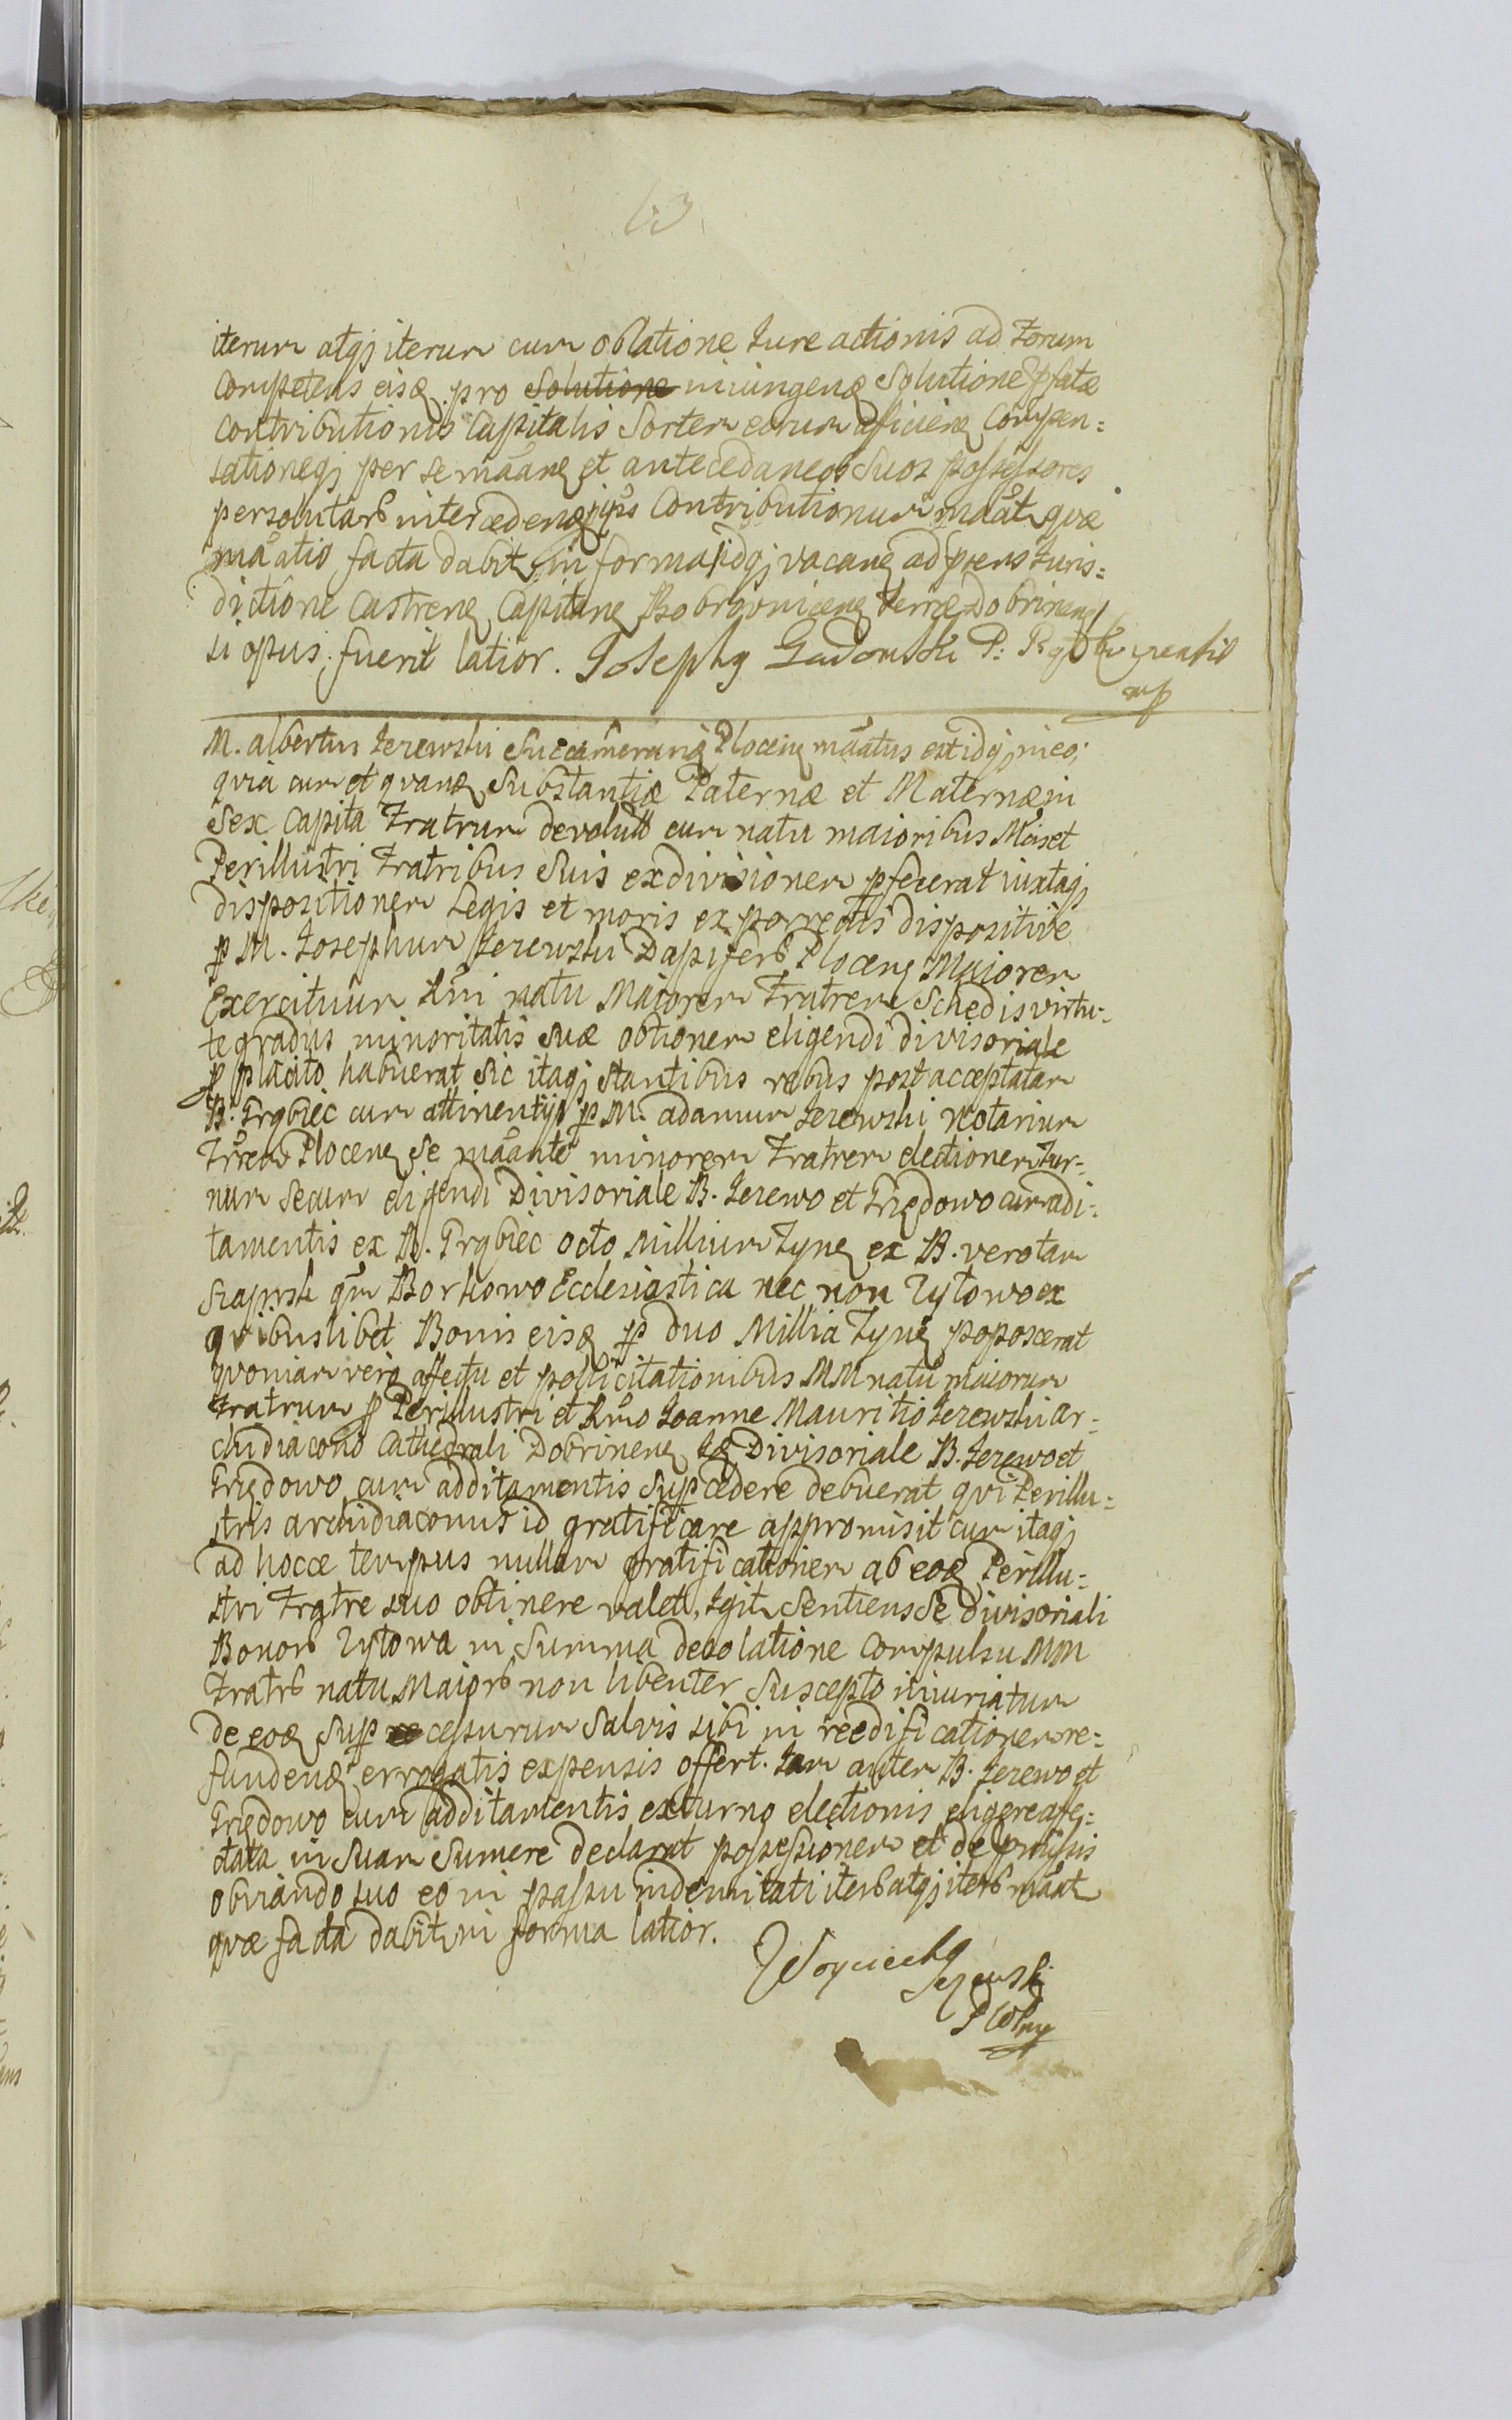 63
iterum atqj iterum cum oblatione Jure actionis ad Forum
Competens eisq pro Solutione iniungenq Solutione pfatæ
Contributionis Capitalis Sortem eorum aficienq Compen=
sationeqj per se mãanq et antecedaneos Suos possessores
persolutars intercedenq ipis Contributionum mãat quæ
mãatio facta dabit in forma idqj vacanq ad prens Juris=
dictione Castrenq Capitanq Bobrovnicenq Terræ Dobrinens
si opus fuerit latior. Josephg Gadomski P:
mp
M. albertus Jezewski Succamerariq Plocenq mãatus est idqj in eo;
quia cum et quanq Substantiæ Paternæ et Maternæ in
Sex Capita Fratrum devolutâ cum natu maioribus Mãis et
Perillustri Fratribus Suis exdivisionem pfecerat iuxtaqj
dispositionem Legis et moris ex porrectis dispositive
p M. Josephum Jezewski Dapiferũ Plocenq Maiorem
Exercituum Rñi natu Maiorem Fratrem Schedis virtu-
te gradus minoritatis suæ obtionem eligendi divisoriale
p placito habuerat Sic itaqj stantibus rebus post acceptatam
B. Grąbiec cum attinentijs p M. adamum Jezewski Notarium
Trrem Plocenq Se mãante minorem Fratrem electionem Tur-
num Secum eligendi Divisoriale B. Jezewo et Trzędowo cum adi-
tamentis ex B. Grąbiec octo Millium Tynq ex B. vero tam
Szapsk qm Borkowo Ecclesiastica nec non Rytowo ex
quibuslibet Bonis eisq p duo Millia Tynq poposcerat
quoniam verq affectu et pollicitationibus MM natu maiorum
Fratrum p Perillustri et Rmo Joanne Mauritio Jezewski ar-
chidiacono Cathedrali Dobrinenq Iq Divisoriale B. Jezewo et
Trzędowo cum additamentis Supcedere debuerat qvi Perillu=
stris archidiaconus id gratificare appromisit cum itaqj
ad hocce tempus nullam gratificationem ab eoq Perillu=
stri Fratre suo obtinere valet, Igit Sentiens Se divisoriali
Bonor Rytowa in Summa desolatione Compulsu MM
Fratrũ natu Maiorũ non libenter Suscepto iniuriatum
de eoq Sup cessurum Salvis sibi in reedificationem re=
fundenq errogatis expensis offert. Jam autem B. Jezewo et
Trzędowo cum additamentis ex turno electionis eligere affe=
ctata in Suam Sumere declarat possessionem et de pmissis
obviando suo eo in passu indemnitati iterũ atqj iterũ mãat
quæ facta dabit in forma latior.
Woyciechq
Jezewski